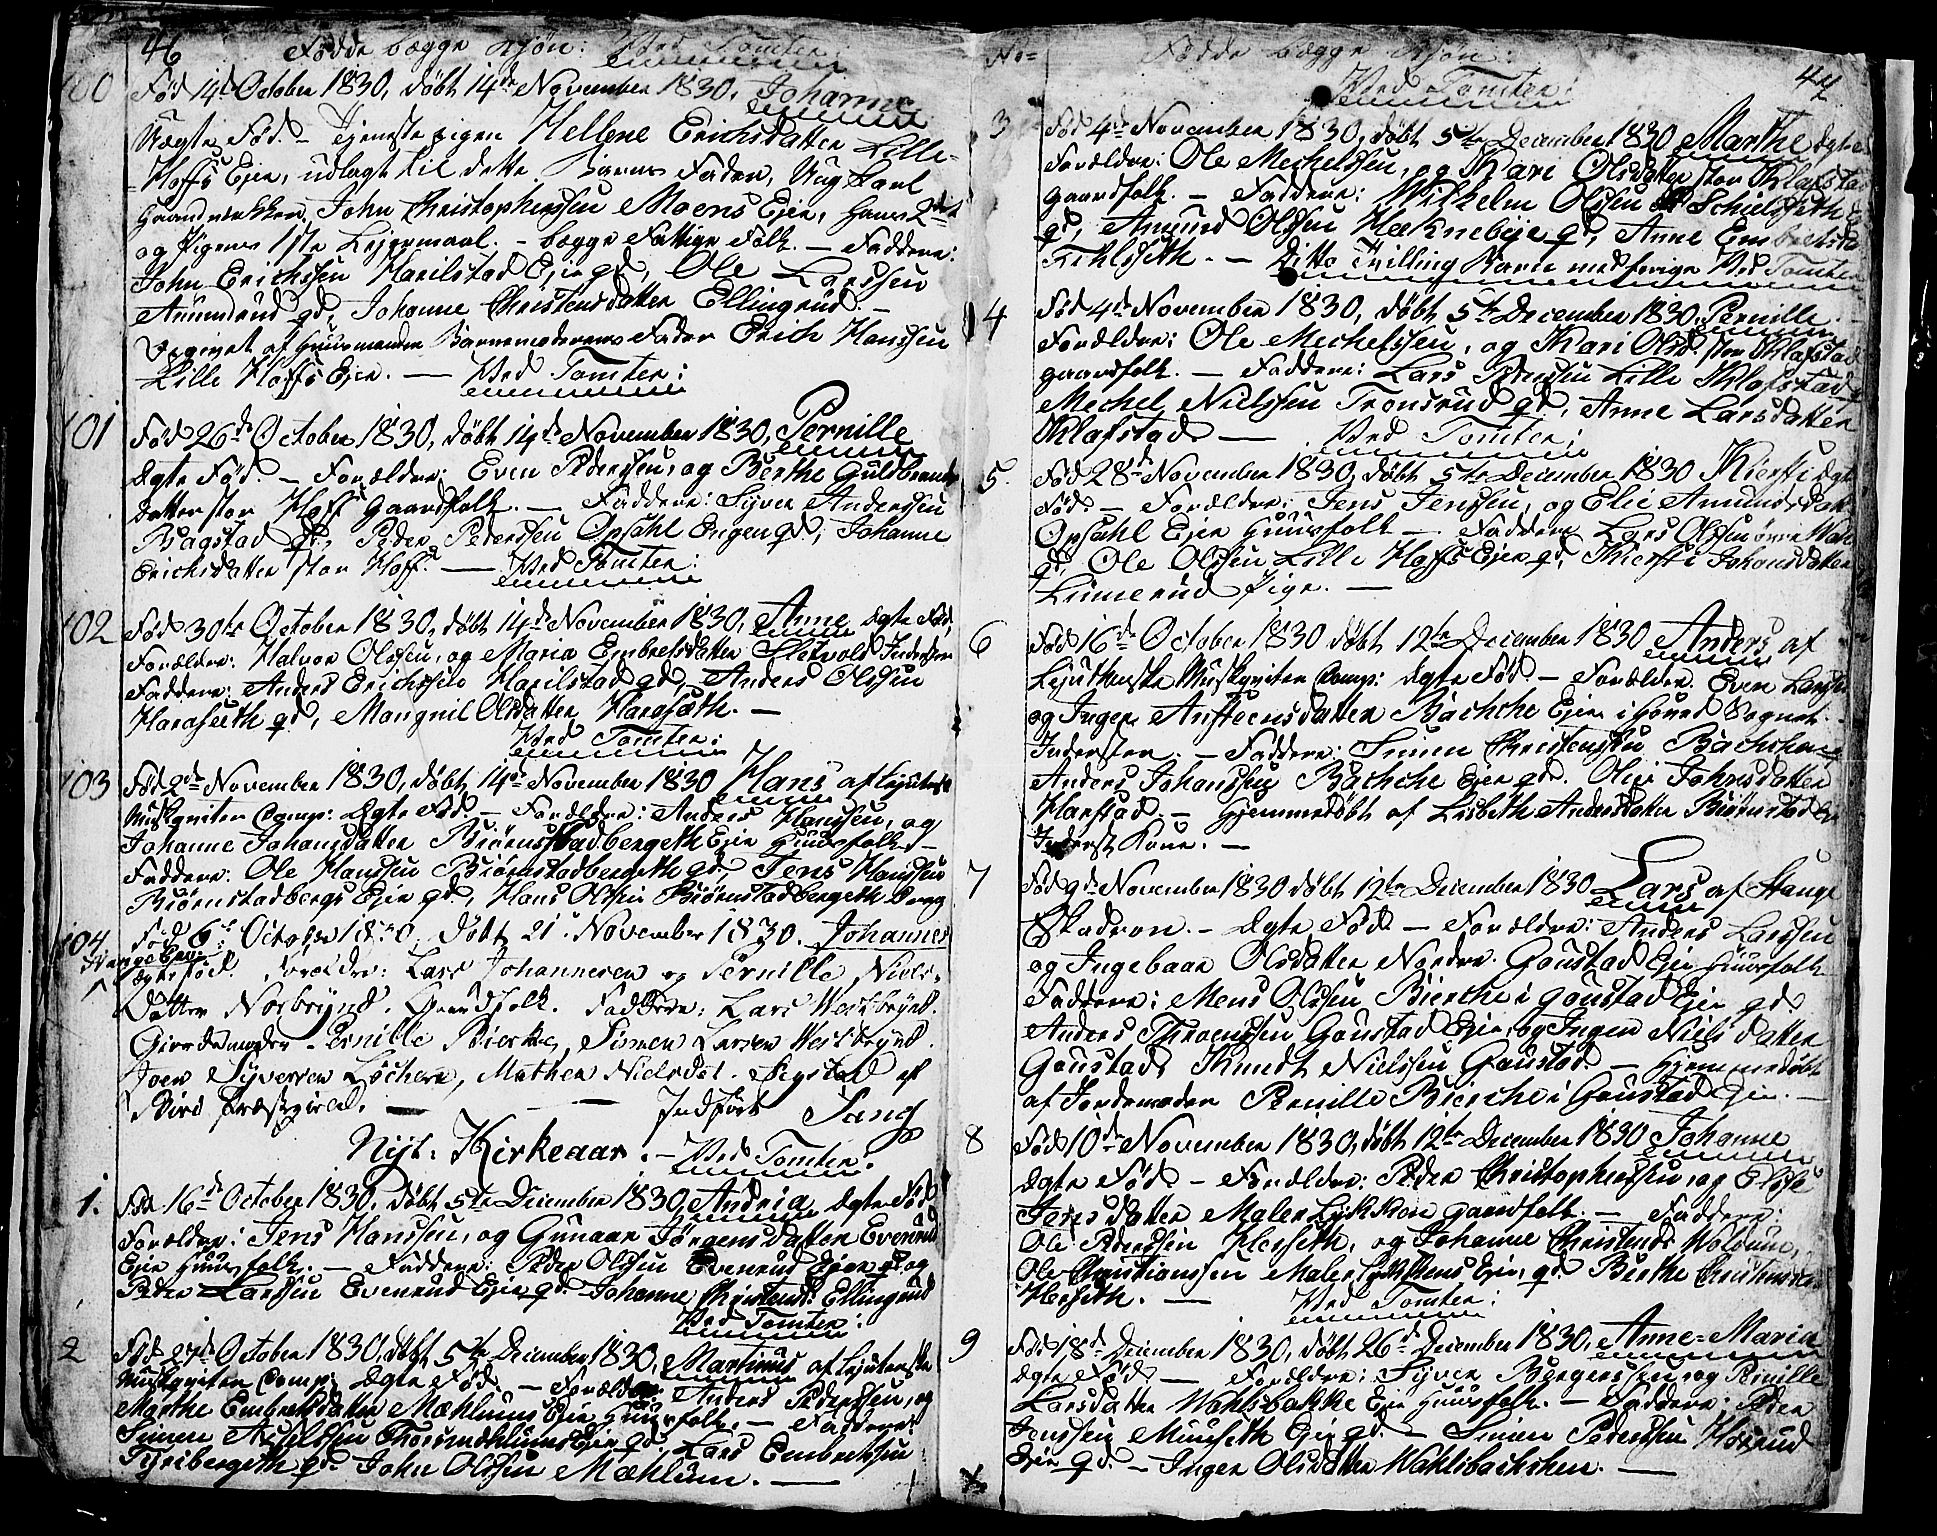 46 Fødde begge Kjøn: Ved Tomter:
100 Fød 14d October 1830, døbt 14de November 1830, Johanne
Uægte Fød. - Tjenestepigen Hellene Erichsdatter Lille-
Hoffs Eje, udlagt til dette Barns Fader, Ung Karl
John Christophersen Moens Eje, hans 2det
og Pigens 1ste Lejermaal. - begge Fattige Folk. - Faddere:
John Erichssen Harilstad Eje gd, Ole Larssen
Amundrud gd, Johanne Christensdatter Ellingrud. -
Opgivet af Huusmanden Barnemoderens Fader Erich Hanssen
Lille Hoffs Eje. - Ved Tomter:
101 Fød 26d October 1830, døbt 14d November 1830, Pernille
Ægte Fød. - Forældre: Even Pedersen, og Berthe Guldbrands
datter stor Hoff Gaardfolk. - Faddere: Syver Anderssen
Bagstad gd, Peder Pederssen Opsahl Engen gd, Johanne
Erichsdatter stor Hoff - Ved Tomter:
102 Fød 30te October 1830, døbt 14d November 1830, Anne Ægte Fød,
Forældre: Halvor Olssen, og Maria Embretsdatter Sletvold Inderster
Faddere: Anders Erichssen Harilstad gd, Anders Olssen
Haraseth gd, Mangnil Olsdatter Haraseth. -
Ved Tomter:
103 Fød 2d November 1830, døbt 14d November 1830 Hans af Ljutenske
Muskqviter Comp: Ægte Fød - Forældre: Anders Hanssen, og
Johanne Johansdatter Biørnstadbergeth Eje Huusfolk. -
Faddere: Ole Hanssen Biørnstadbergeth gd, Jens Hanssen
Biørnstadbergs Eje gd, Hans Olssen Biørnstadbergeth Dreng
104 Fød 6te October 1830, døbt 21. November 1830. Johannes
Ægte fød. Forældre: Lars Johannesen og Pernille Niels-
Datter Norbrynd. Gaardfolk. Faddere: Lars Westbrynd.
Giordemoder Pernille Bierke, Simen Larsen Westbrynd.
Joen Syversen Løchen, Mathea Nielsdat. Sigstad af
Birid Præstegield. - Indført Sang
Nyt: Kirkeaar. - Ved Tomter:
1. Fød 16d October 1830, døbt 5te December 1830, Andria Ægte Fød
Forældre: Jens Hanssen, og Gunaar Jørgensdatter Evenrud
Eje Huusfolk. - Faddere: Peder Olssen Evenrud Eje gd, og
Peder Larssen Evenrud Eje gd. Johanne Christensd: Ellingrud
Ved Tomter:
2 Fød 27d October 1830, døbt 5te December 1830, Martinus af Ljutenske
Muskqviter Comp: Ægte Fød - Forældre Anders Pederssen, og
Marthe Embretsdatter Mæhlums Eje Huusfolk. - Faddere:
Simen Axelssen Thorsmæhlums Eje gd. Lars Embretssen
Fyribergeth gd. John Olssen Mæhlum. -
No= Fødde begge Kjøn: 47
Ved Tomter:
3 Fød 4d November 1830, døbt 5te December 1830 Marthe Ægte
Forældre: Ole Mechelssen, og Kari Olsdatter stor Klafstad
gaardfolk. - Faddere: Wilhelm Olssen Schielsseth
gd, Amund Olssen Hæknebye gd, Anne Embretsd
- Ditto Tvilling Barn med forige Ved Tomter
4 Fød 4d November 1830, døbt 5te December 1830, Pernille. -
Forældre: Ole Mechelssen, og Kari Olsd. stor Klafstad
gaardfolk. - Faddere: Lars Pederssen Lille Klafstad
Mechel Nielssen Tronsrud gd, Anne Larsdatter
Klafstad - Ved Tomter:
5. Fød 28d November 1830, døbt 5te December 1830 Kiersti Ægte
Fød. - Forældre: Jens Jenssen, og Elie Amundsdat:
Opsahl Eje Huusfolk. - Faddere Lars Olssen
gd, Ole Olssen Lille Hoffs Eje gd, Kiersti Johansdatter
Limerud Pige. -
6 Fød 16d October 1830 døbt 12te December 1830 Anders af
Ljuthenske Muskqviter Comp: Ægte Fød - Forældre Even Larssen
og Inger Anstensdatter Bachche Eje i Hoved Sognet.
Inderster. - Faddere: Simen Christenssen Bachchen
Anders Johanssen Bachche Eje gd. Olia Johnsdatter
Harstad. - Hjemmedøbt af Lisbeth Andersdatter Biørnstad
Inderst Kone. -
7 Fød 9d November 1830 døbt 12te December 1830 Lars af Stange
Eskadron. - Ægte Fød - Forældre: Anders Larssen
og Ingebaar Olsdatter Nordre Gaustad Eje Huusfolk
Faddere: Mens Olssen Bierche i Gaustad Eje gd.
Anders Throenssen Gaustad Eje, og Inger Niels datter
Gaustad, Knudt Nielssen Gaustad. - Hjemmedøbt
af Jordemoder Pernille Bierche i Gaustad Eje. -
8 Fød 10d November 1830, døbt 12te December 1830 Johanne
Ægte Fød - Forældre: Peder Christophersen, og Else
Jensdatter Maler Løkken gaardfolk. - Faddere:
Ole Pederssen Hesseth, og Johanne Christensd: Woldum,
Ole Christianssen Maler Løkkens Eje, gd. Berthe Christensdat
Hesseth. - Ved Tomter:
9 Fød 18d December 1830, døbt 26d December 1830, Anne=Maria
Ægte Fød - Forældre: Syver Bergerssen, og Pernille
Larsdatter Wahlsbakke Eje Huusfolk. - Faddere: Peder
Jenssen Munseth Eje gd. - Simen Pederssen Hosrud
Eje gd. - Inger Olsdatter Wahlsbachchen. -